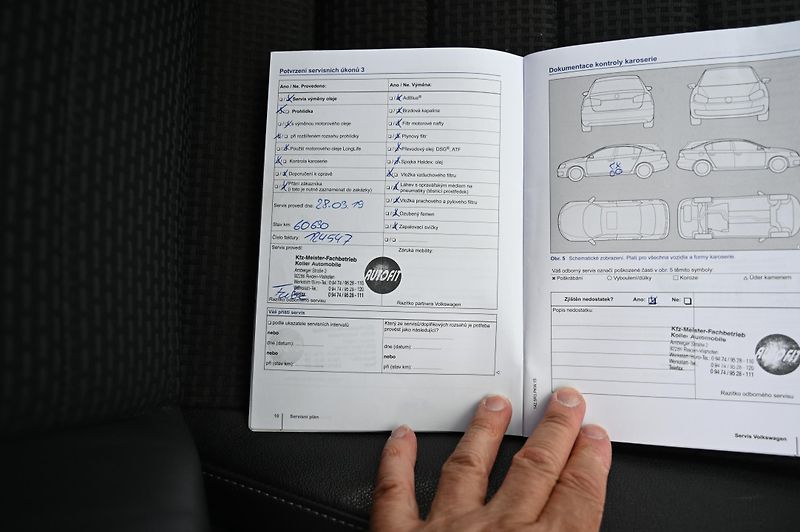 Potvrzení servisních úkonů 3
Ano / Ne: Provedeno:
Servis výměny oleje
Prohlídka
s výměnou motorového oleje
při rozšířeném rozsahu prohlídky
Použit motorového oleje LongLife
Kontrola karoserie
Doporučení k opravě
Přání zákazníka
(i toto je nutné zaznamenat do zakázky)
Servis proveď dne: 28.03.19
Stav km: 60690
Číslo faktury: 124547
Servis provedl:
Kfz-Meister-Fachbetrieb
Koller Automobile
Amberger Straße 2
92286 Rieden-Vilshofen
Werkstatt/Büro-Tel.: 0 94 74 / 95 28 - 110
Werkstatt-Tel.: 0 94 74 / 95 28 - 120
Telefax: 0 94 74 / 95 28 - 111
AUTOFIT
Razítko odborného servisu
Ano / Ne: Výměna:
AdBlue®
Brzdová kapalina
Filtr motorové nafty
Plynový filtr
Převodový olej: DSG®, ATF
Spojka Haldex: olej
Vložka vzduchového filtru
Láhev s opravářským médiem na
pneumatiky (těsnicí prostředek)
Vložka prachového a pylového filtru
Ozubený řemen
Zapalovací svíčky
Záruka mobility:
Razítko partnera Volkswagen
Váš příští servis
podle ukazatele servisních intervalů
nebo
dne (datum):
nebo
při (stav km):
Který ze servisů/doplňkových rozsahů je potřeba
provést jako následující?
dne (datum):
nebo
při (stav km):
16 Servisní plán
Dokumentace kontroly karoserie
Obr. 5 Schematické zobrazení. Platí pro všechna vozidla a formy karoserie.
Váš odborný servis označí poškozené části v obr. 5 těmito symboly:
× Poškrábání ○ Vyboulení/důlky □ Koroze △ Úder kamenem
Zjištěn nedostatek? Ano: Ne:
Popis nedostatku:
Kfz-Meister-Fachbetrieb
Koller Automobile
Amberger Straße 2
92286 Rieden-Vilshofen
Werkstatt/Büro-Tel.: 0 94 74 / 95 28 - 110
Werkstatt-Tel.: 0 94 74 / 95 28 - 120
Telefax: 0 94 74 / 95 28 - 111
AUTOFIT
Razítko odborného servisu
Servis Volkswagen